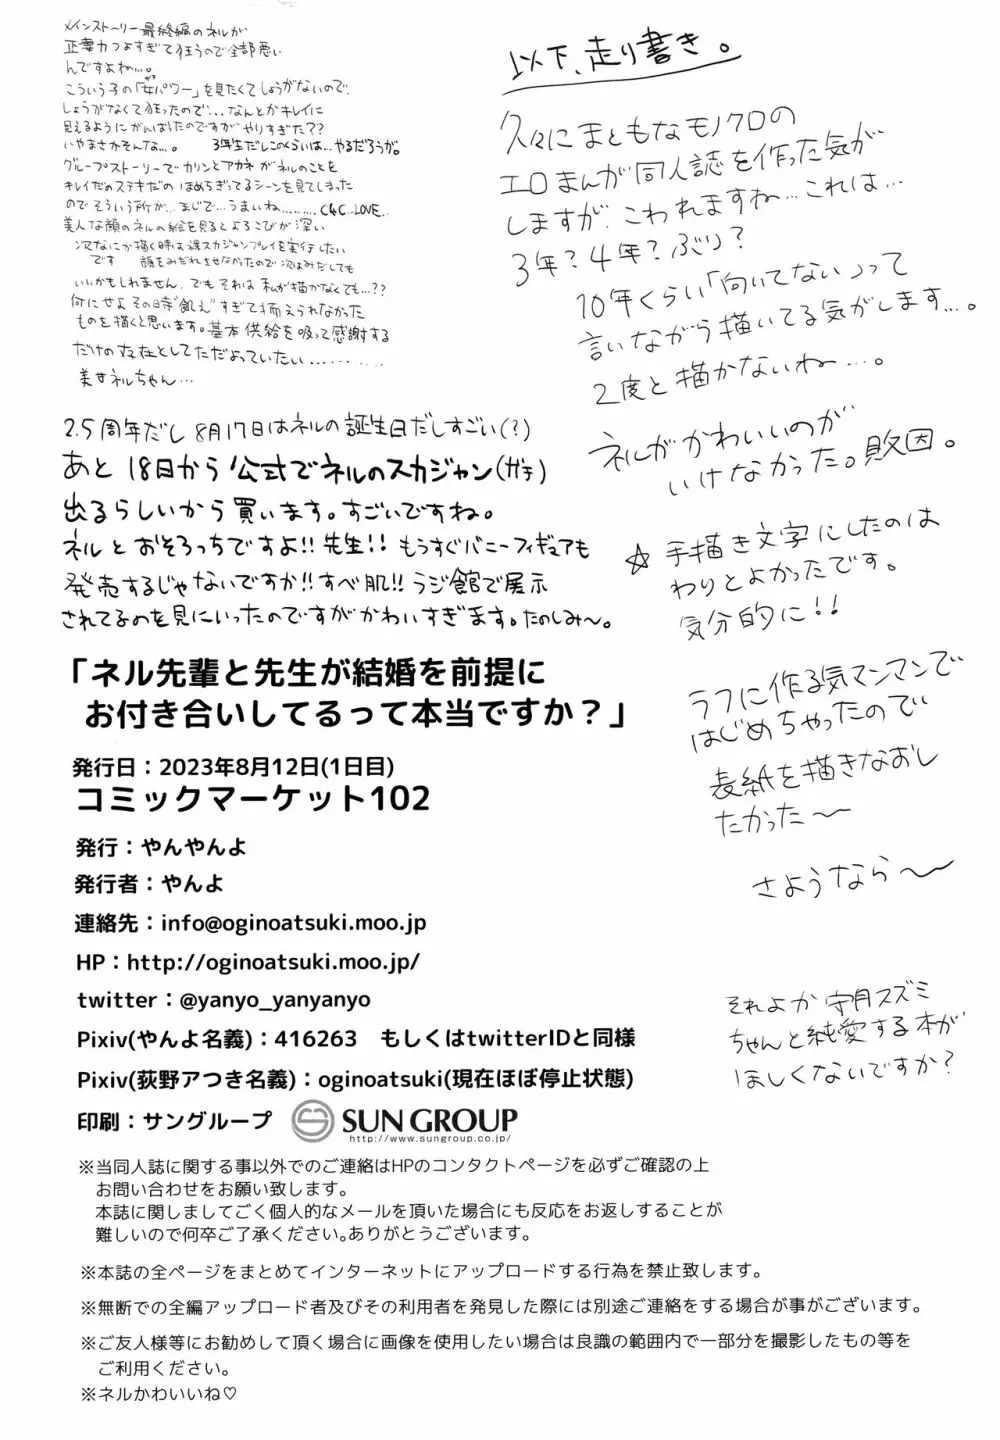 メインストーリー最終編のネルが
正妻力つよすぎて狂うので全部悪い
んですよね…。
こういう子の「女パワー」を見たくてしょうがないので、
しょうがなくて狂ったので…なんとかキレイに
見えるようにがんばたのですがやりすぎた??
いやまさかそんな…。 3年生だしこのくらいは…やるだろうが。
グループストーリーでカリンとアカネがネルのことを
キレイだのステキだのほめちぎってるシーンを見てしまった
のでそういう所が…まじで…うまいね……… C&C…LOVE…
美人な顔のネルの絵を見るとよろこびが深い
次なにか描く時は裸スカジャンプレイを実行したい
です 顔をみだれさせなかったので次はみだしても
いいかもしれません、でもそれは私が描かなくても…??
何にせよその時"飢え"すぎて抑えられなかった
ものを描くと思います。基本供給を吸って感謝する
だけの存在としてただよっていたい…………
美女ネルちゃん…
2.5周年だし8月17日はネルの誕生日だしすごい(?)
あと18日から公式でネルのスカジャン(ガチ)
出るらしいから買います。すごいですね。
ネルとおそろっちですよ!!先生!!もうすぐバニーフィギュアも
発売するじゃないですか!!すべ肌!!ラジ館で展示
されてるのを見にいったのですがかわいすぎます。たのしみ〜。
以下、走り書き。
久々にまともなモノクロの
エロまんが同人誌を作った気が
しますが、こわれますね…これは…
3年?4年?ぶり?
10年くらい「向いてない」って
言いながら描いてる気がします…。
2度と描かないね…。
ネルがかわいいのが
いけなかった。敗因。
☆手描き文字にしたのは
わりとよかったです。
気分的に!!
ラフに作る気マンマンで
はじめちゃったので
表紙を描きなおし
たかった〜
さようなら〜
それよか守月スズミ
ちゃんと純愛する本が
ほしくないですか?
「ネル先輩と先生が結婚を前提に
お付き合いしてるって本当ですか?」
発行日：2023年8月12日(1日目)
コミックマーケット102
発行：やんやんよ
発行者：やんよ
連絡先：info@oginoatsuki.moo.jp
HP：http://oginoatsuki.moo.jp/
twitter：@yanyo_yanyanyo
Pixiv(やんよ名義)：416263 もしくはtwitterIDと同様
Pixiv(荻野アつき名義)：oginoatsuki(現在ほぼ停止状態)
印刷：サングループ SUN GROUP
http://www.sungroup.co.jp/
※当同人誌に関する事以外でのご連絡はHPのコンタクトページを必ずご確認の上
お問い合わせをお願い致します。
本誌に関しましてごく個人的なメールを頂いた場合にも反応をお返しすることが
難しいので何卒ご了承ください。ありがとうございます。
※本誌の全ページをまとめてインターネットにアップロードする行為を禁止致します。
※無断での全編アップロード者及びその利用者を発見した際には別途ご連絡をする場合が事がございます。
※ご友人様等にお勧めして頂く場合に画像を使用したい場合は良識の範囲内で一部分を撮影したもの等を
ご利用ください。
※ネルかわいいね♡